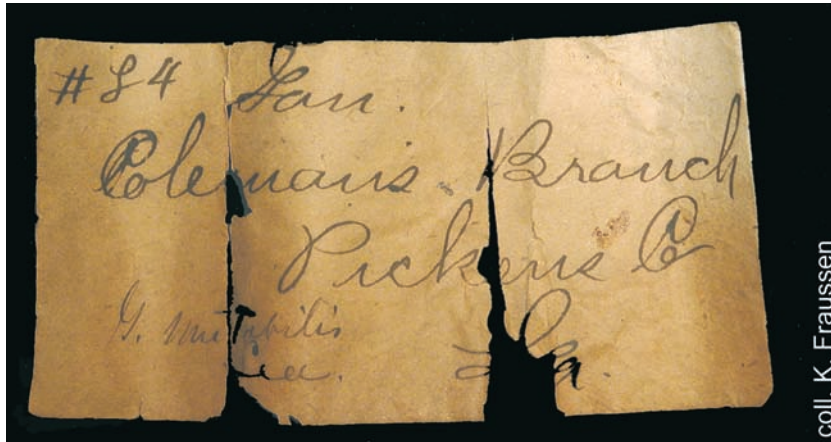 #84 Jan.
Coleman's Branch
Pickens Co
G. mutabilis
Lea. Ga.
coll. K. Fraussen